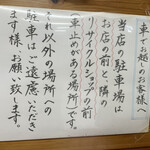 車でお越しのお客様へ
当店の駐車場は
店の前と、隣の
リサイクルショップの前
(車止めがある場所)です。
それ以外の場所への
駐車はご遠慮いただき
ます様、お願い致します。